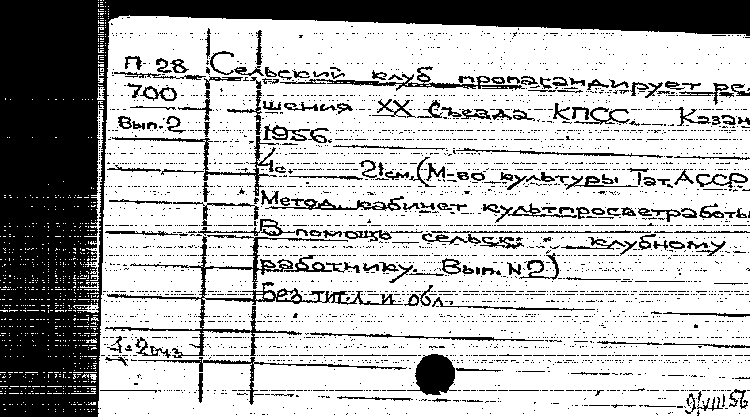 П 28 Сельский клуб пропагандирует ре-
700 шения XX Съезда КПСС. Казан
Вып. 2 1956.
4с. 21см. (М-во культуры Тат. АССР
Метод. кабинет культпросветработы
В помощь сельск. клубному
работнику. Вып. №2)
Без тит. л. и обл.
9/VIII 56